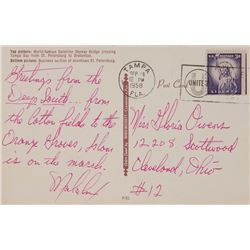 Top picture: World-famous Sunshine Skyway Bridge crossing
Tampa Bay from St. Petersburg to Bradenton.
Bottom picture: Business section of downtown St. Petersburg.
Greetings from the
Deep South... from
the cotton fields to the
Orange Groves, Islam
is on the march.
Malcolm
TAMPA
12 PM
1958
FLA.
UNITED
Post Card
Miss Gloria Owens
12208 Scottwood
Cleveland, Ohio
#12